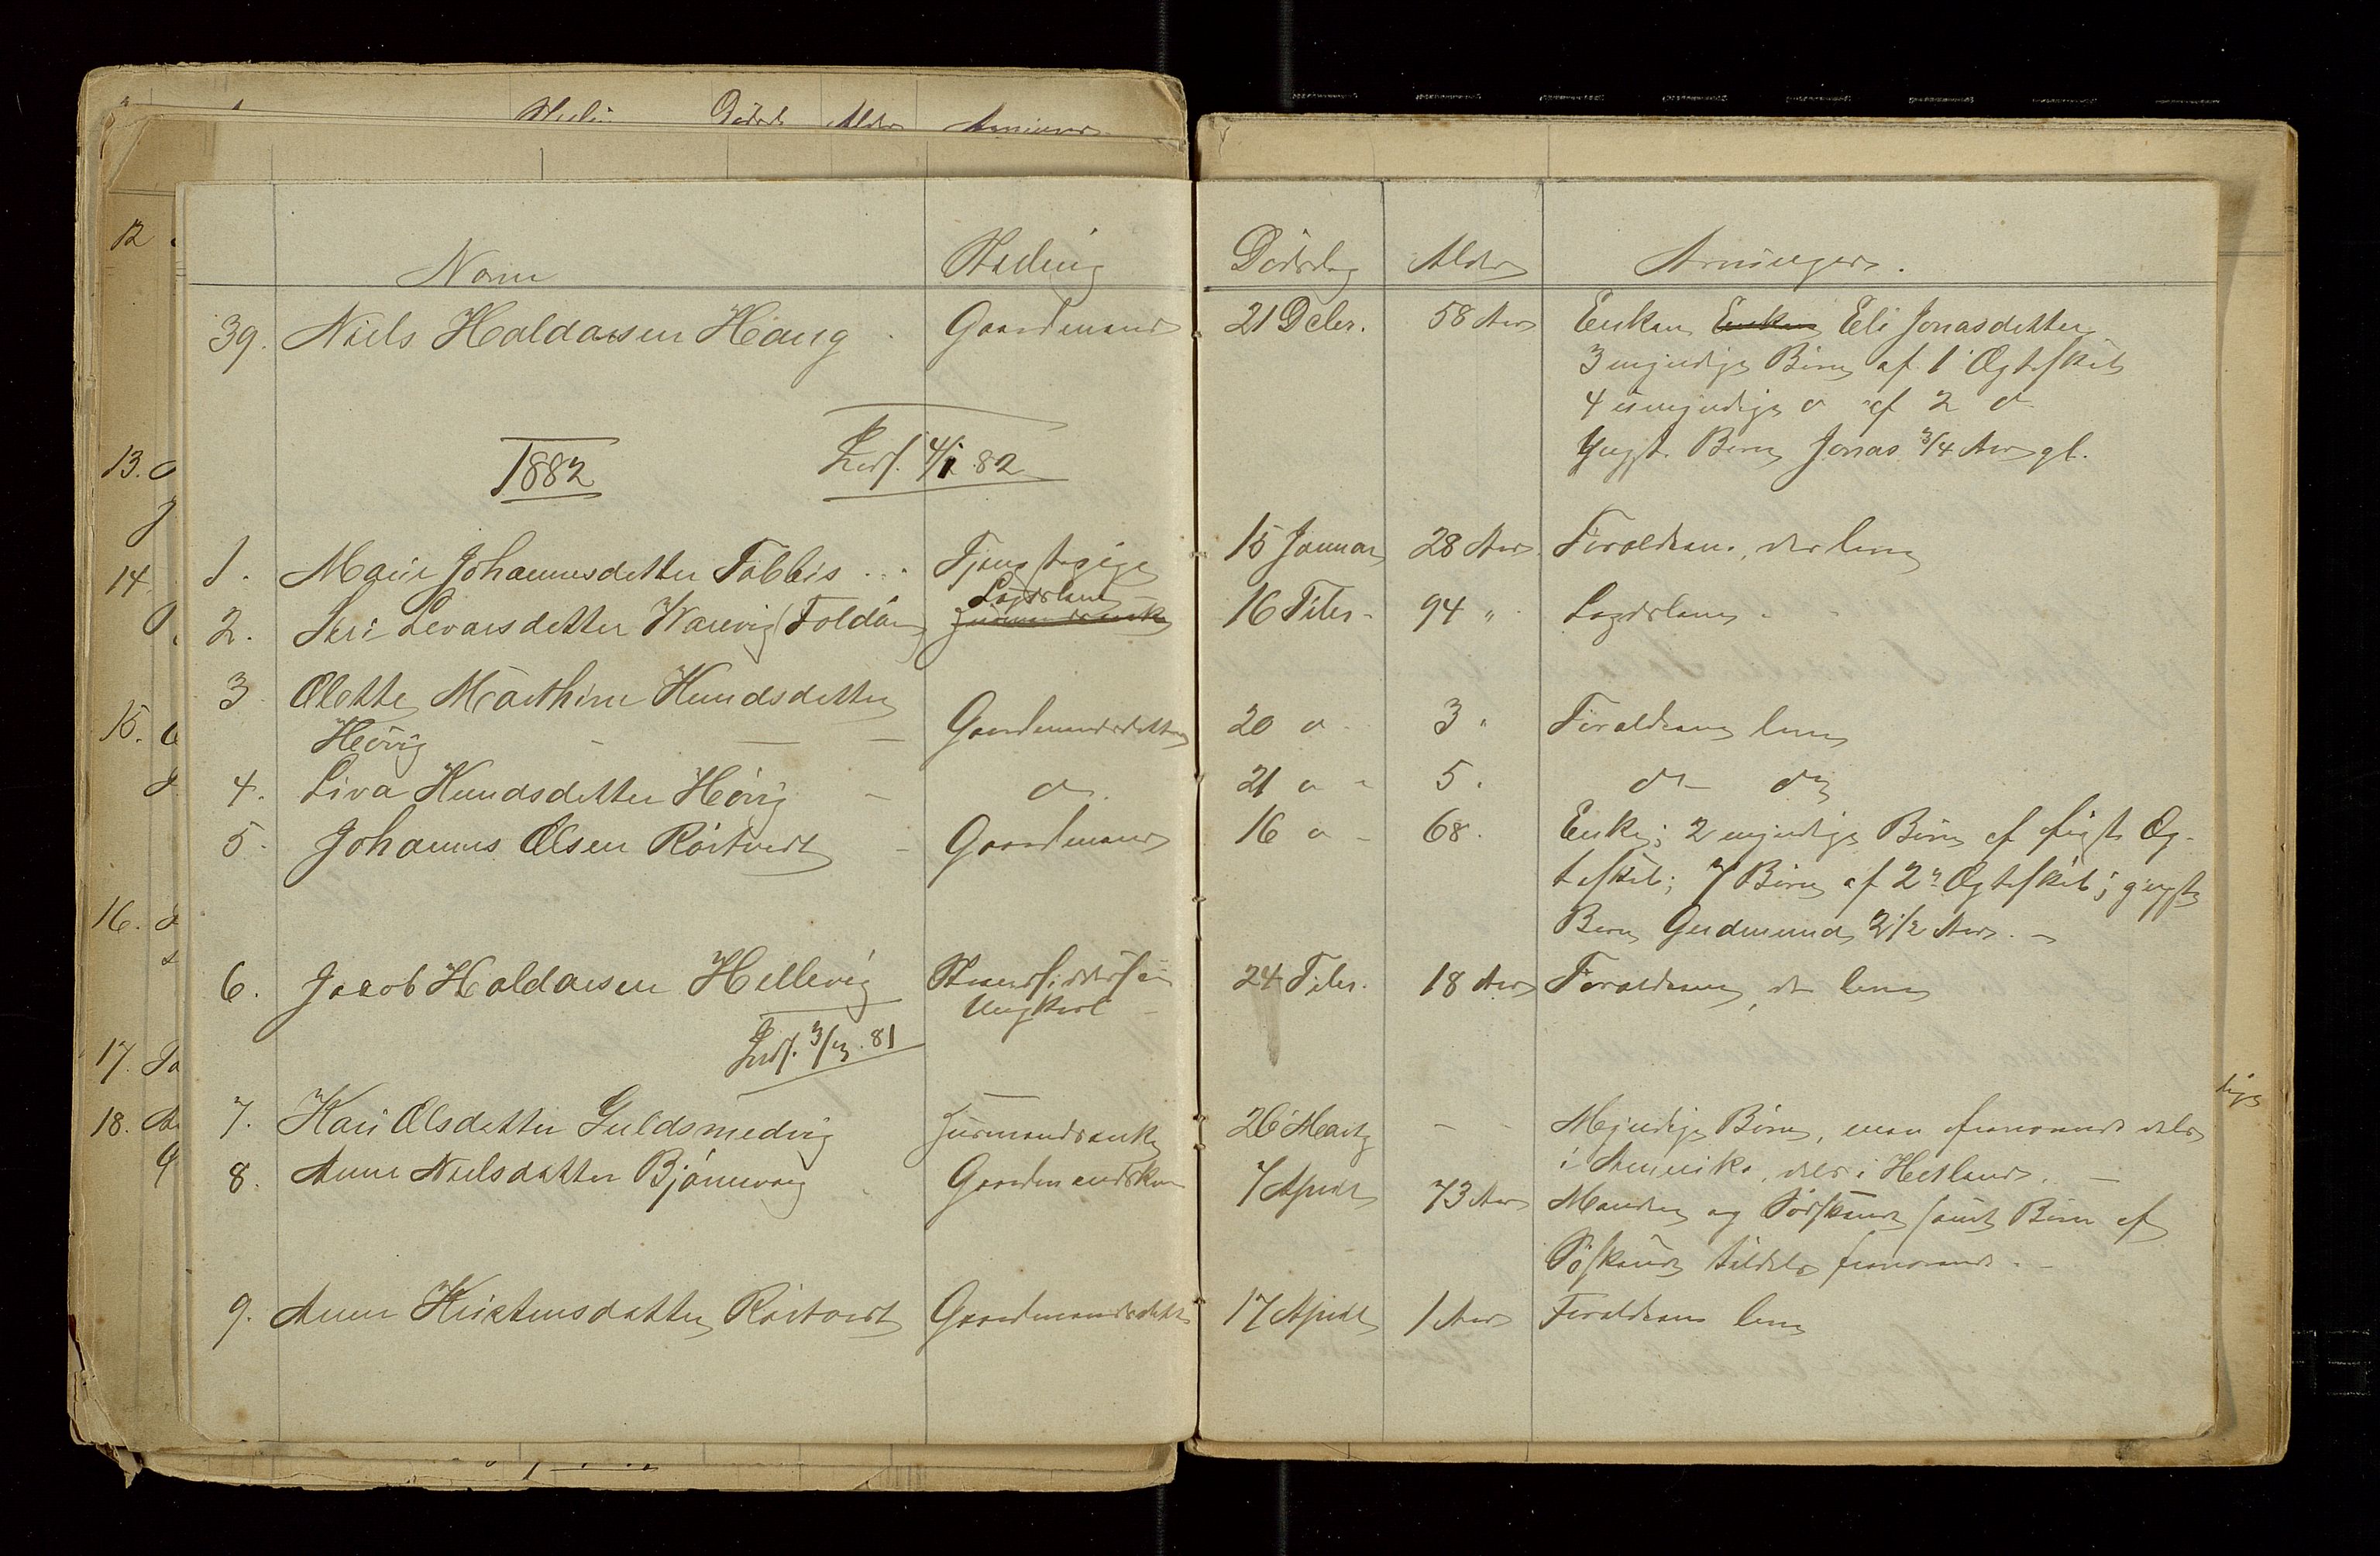 Navn Stilling Dødsdag Alder Arvinger.
39. Niels Haldorsen Haug Gaardmand 21 Decbr. 58 Aar Enken Enken Eli Jonasdatter
3 myndige Børn af 1 Ægteskab
4 umyndige do af 2 do
Yngste Barn Jonas 3/4 Aar gl.
1882 Indf. 4/1 82
1. Marie Johannesdatter Tabbis Tjenestepige 15 Januar 28 Aar Forældrene, der leve
2. Siri Levarsdatter Warvig (Foldøen) Lægdslem 16 Febr. 94 " Lægdslem
3 Olette Marthine Knudsdatter
Høvig Gaardmandsdatter 20 do 3 " Forældrene leve
4. Siva Knudsdatter Høvig do. 21 do 5. do do
5. Johannes Olsen Røitvedt Gaardmand 16 do 68. Enke; 2 myndige Børn af første Æg-
teskab; 7 Børn af 2 Ægteskab; yngste
Barn Gudmund 2 1/2 Aar.
6. Jacob Haldorsen Hellevig 24 Febr. 18 Aar Forældrene, der leve
Ungkarl
Indf. 3/3. 81
7. Kari Olsdatter Guldsmedvig Husmandsenke 26 Martz - - Myndige Børn, men fraværende dels
i Amerika, dels i Hetland.
8. Anne Nielsdatter Bjørnevaag Gaardmandskone 7 April 73 Aar Manden og Sødskende samt Børn af
Søskende tildels fraværende.
9. Anne Kristensdatter Røitvedt Gaardmandsdatter 17 April 1 Aar Forældrene leve
12
13.
14
15.
16.
17.
18.